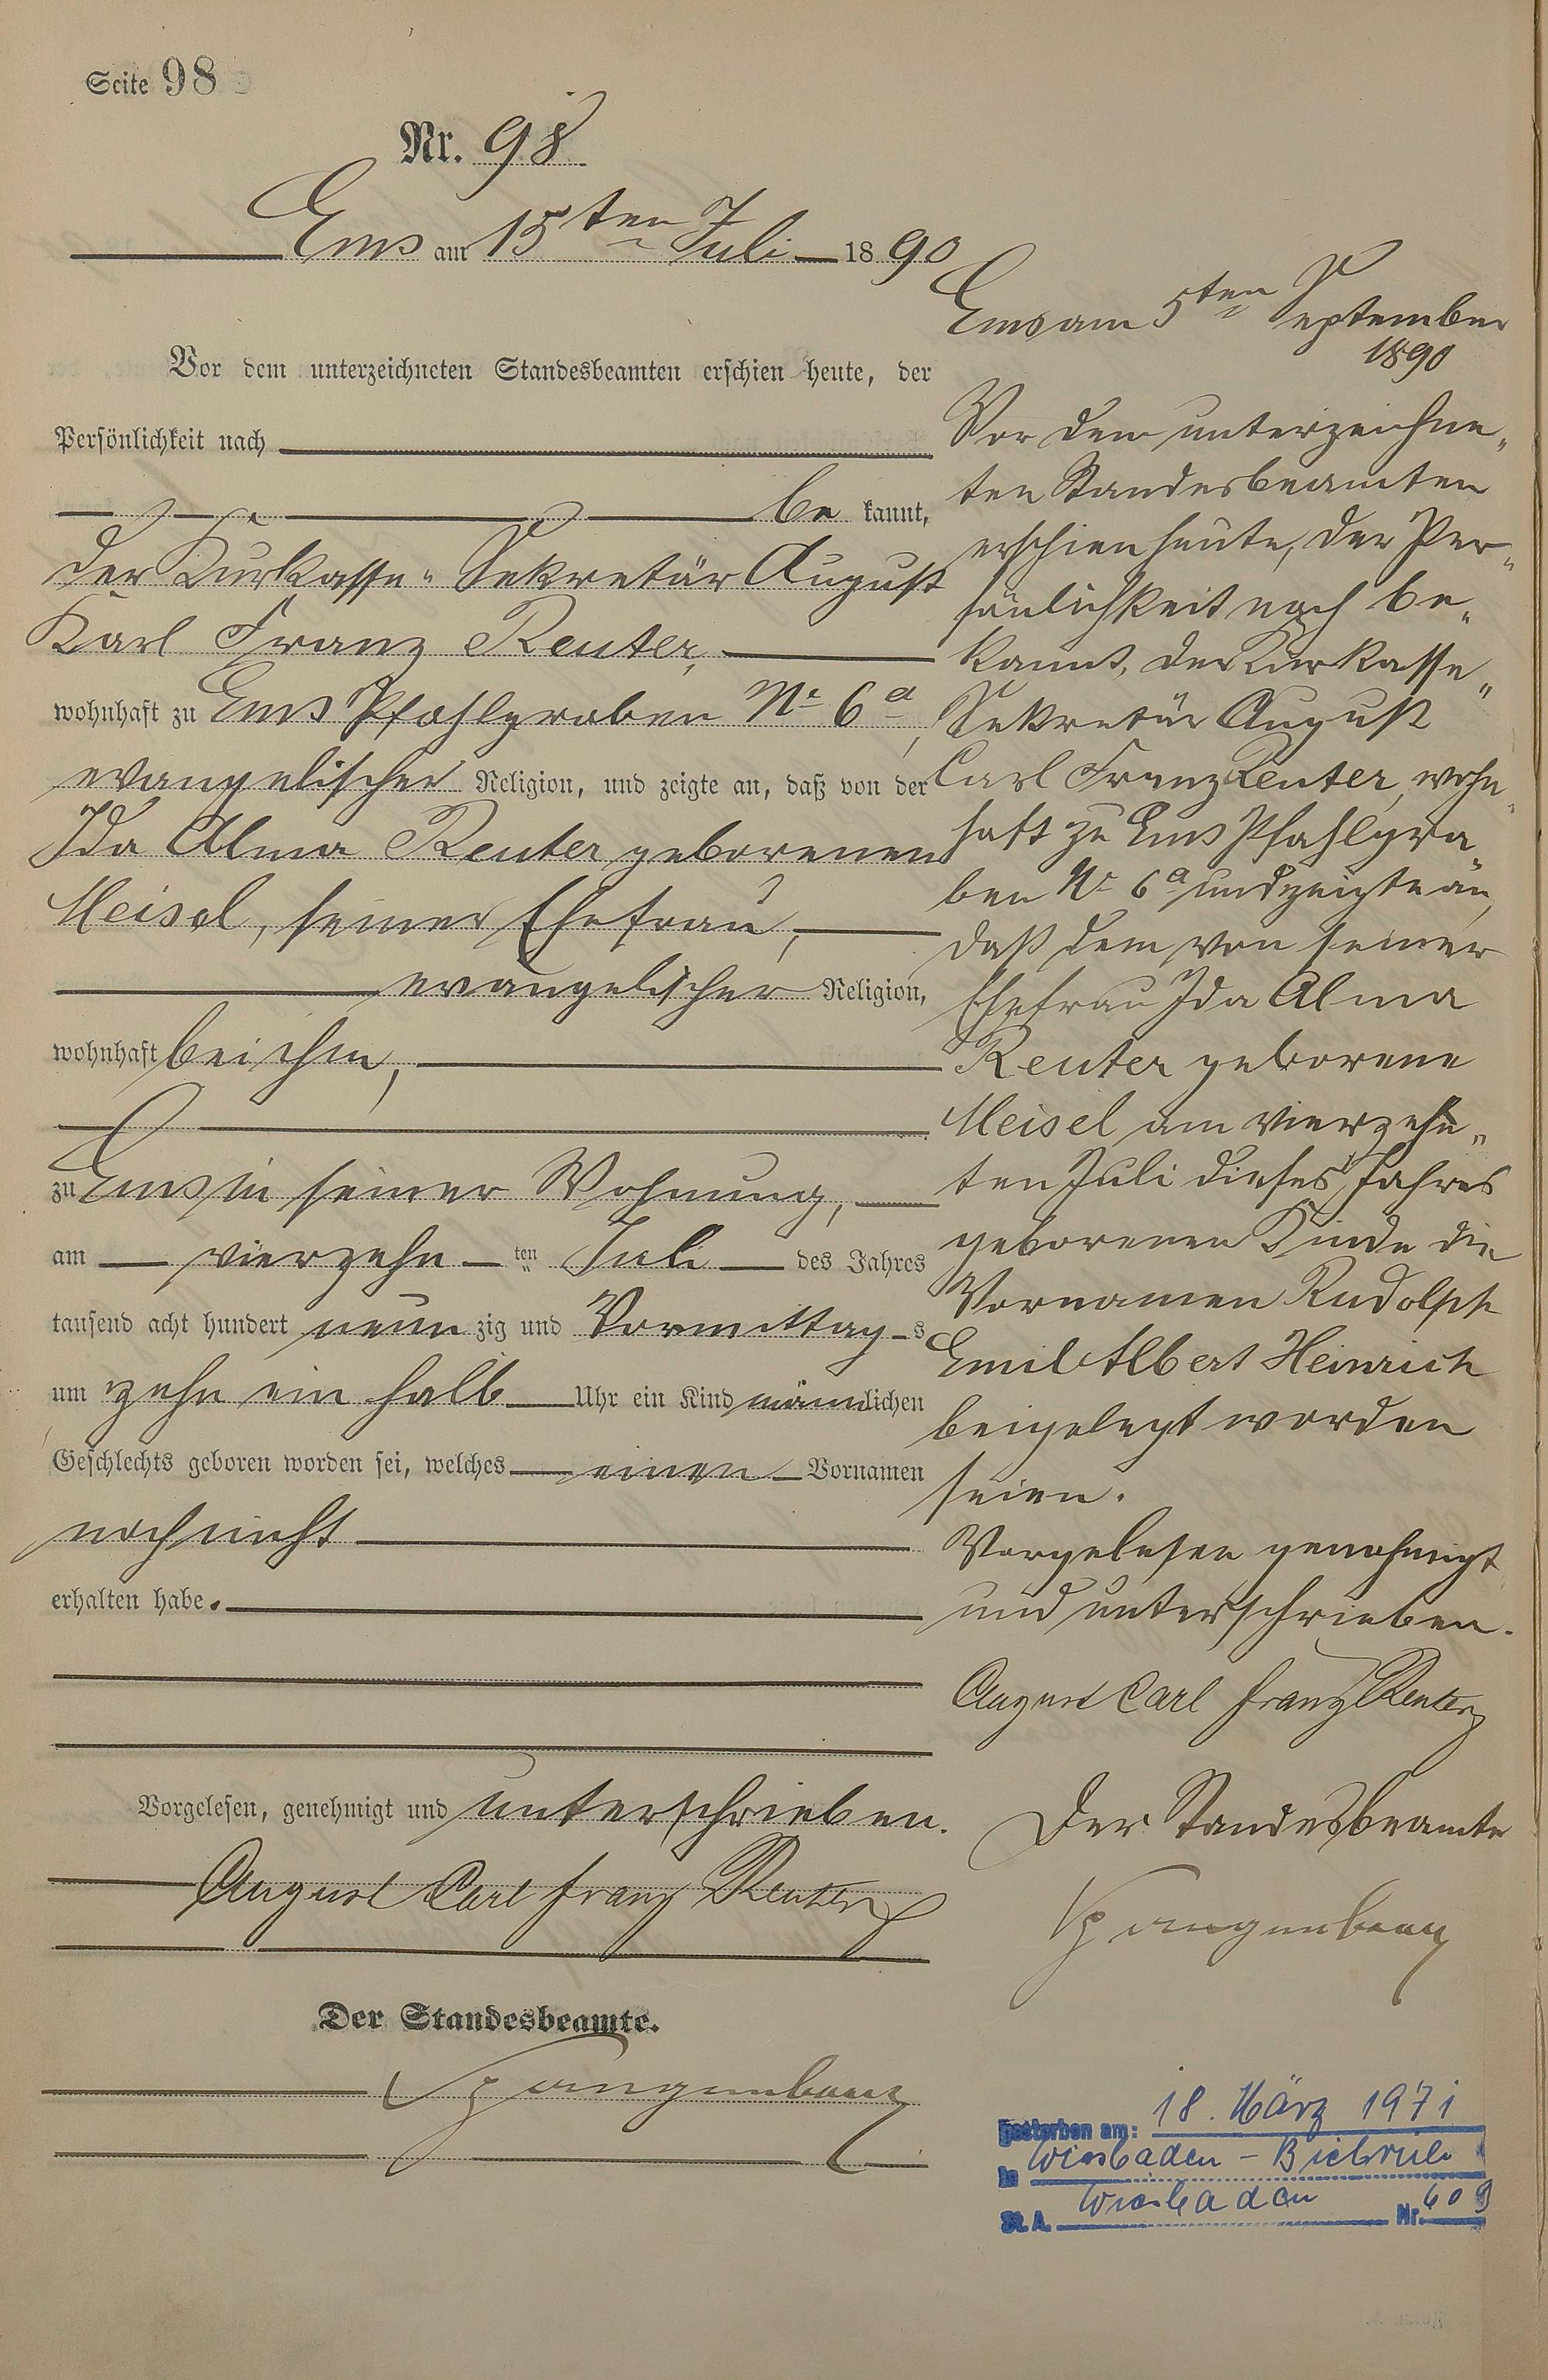 Seite 98
Nr. 98
Ems am 15ten Juli 1890
Vor dem unterzeichneten Standesbeamten erschien heute, der
Persönlichkeit nach
be kannt,
der Kurkasse-Sekretär August
Karl Franz Reuter,
wohnhaft zu Ems Pfahlgraben No 6a,
evangelischer Religion, und zeigte an, daß von der
Ida Alma Reuter geborenen
Meisel, seiner Ehefrau,
evangelischer Religion,
wohnhaft bei ihm,
zu Ems in seiner Wohnung,
am vierzehn ten Juli des Jahres
tausend acht hundert neun zig und Vormittag s
um zehn ein halb Uhr ein Kind männlichen
Geschlechts geboren worden sei, welches einen Vornamen
noch nicht
erhalten habe.
Vorgelesen, genehmigt und unterschrieben.
August Carl Franz Reuter
Der Standesbeamte.
Spangenberg
Ems am 5ten September
1890
Vor dem unterzeichne-
ten Standesbeamten
erschien heute, der Per-
sönlichkeit nach be-
kannt, der Kurkasse-
Sekretär August
Carl Franz Reuter, wohn-
haft zu Ems Pfahlgra-
ben No 6a und zeigte an,
daß dem von seiner
Ehefrau Ida Alma
Reuter geborene
Meisel am vierzehn-
ten Juli dieses Jahres
geborenen Kinde die
Vornamen Rudolph
Emil Albert Heinrich
beigelegt worden
seien.
Vorgelesen genehmigt
und unterschrieben.
August Carl Franz Reuter
Der Standesbeamte
Spangenberg
gestorben am: 18. März 1971
in Wiesbaden-Biebrich
St. A. Wiesbaden Nr. 609